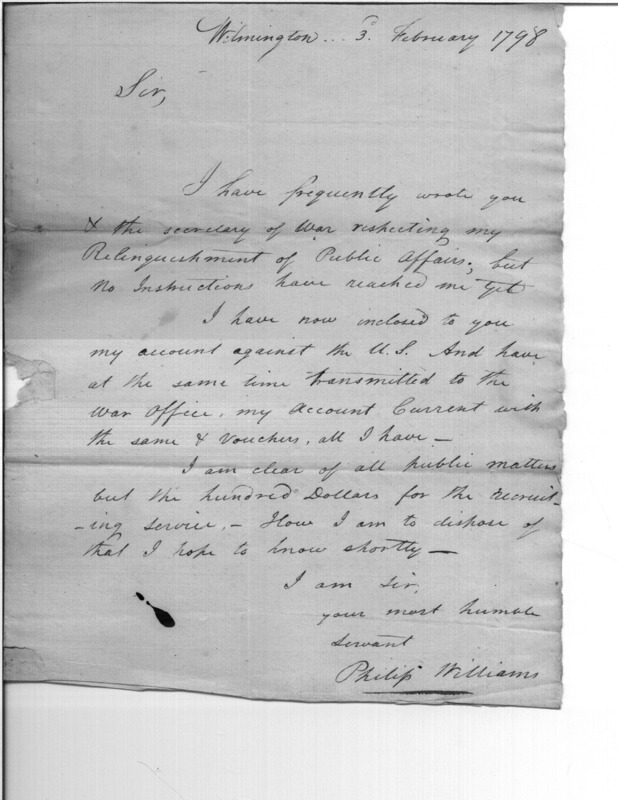 Wilmington... 3d. February 1798
Sir,
I have frequently wrote you
& the secretary of War respecting my
Relinquishment of Public Affairs; but
No Instructions have reached me yet
I have now inclosed to you
my account against the U.S. And have
at the same time transmitted to the
War Office, my Account Current with
the same & Vouchers, all I have —
I am clear of all public matters
but the hundred Dollars for the recruit-
-ing service, – How I am to dispose of
that I hope to know shortly —
I am Sir,
your most humble
servant
Philip Williams